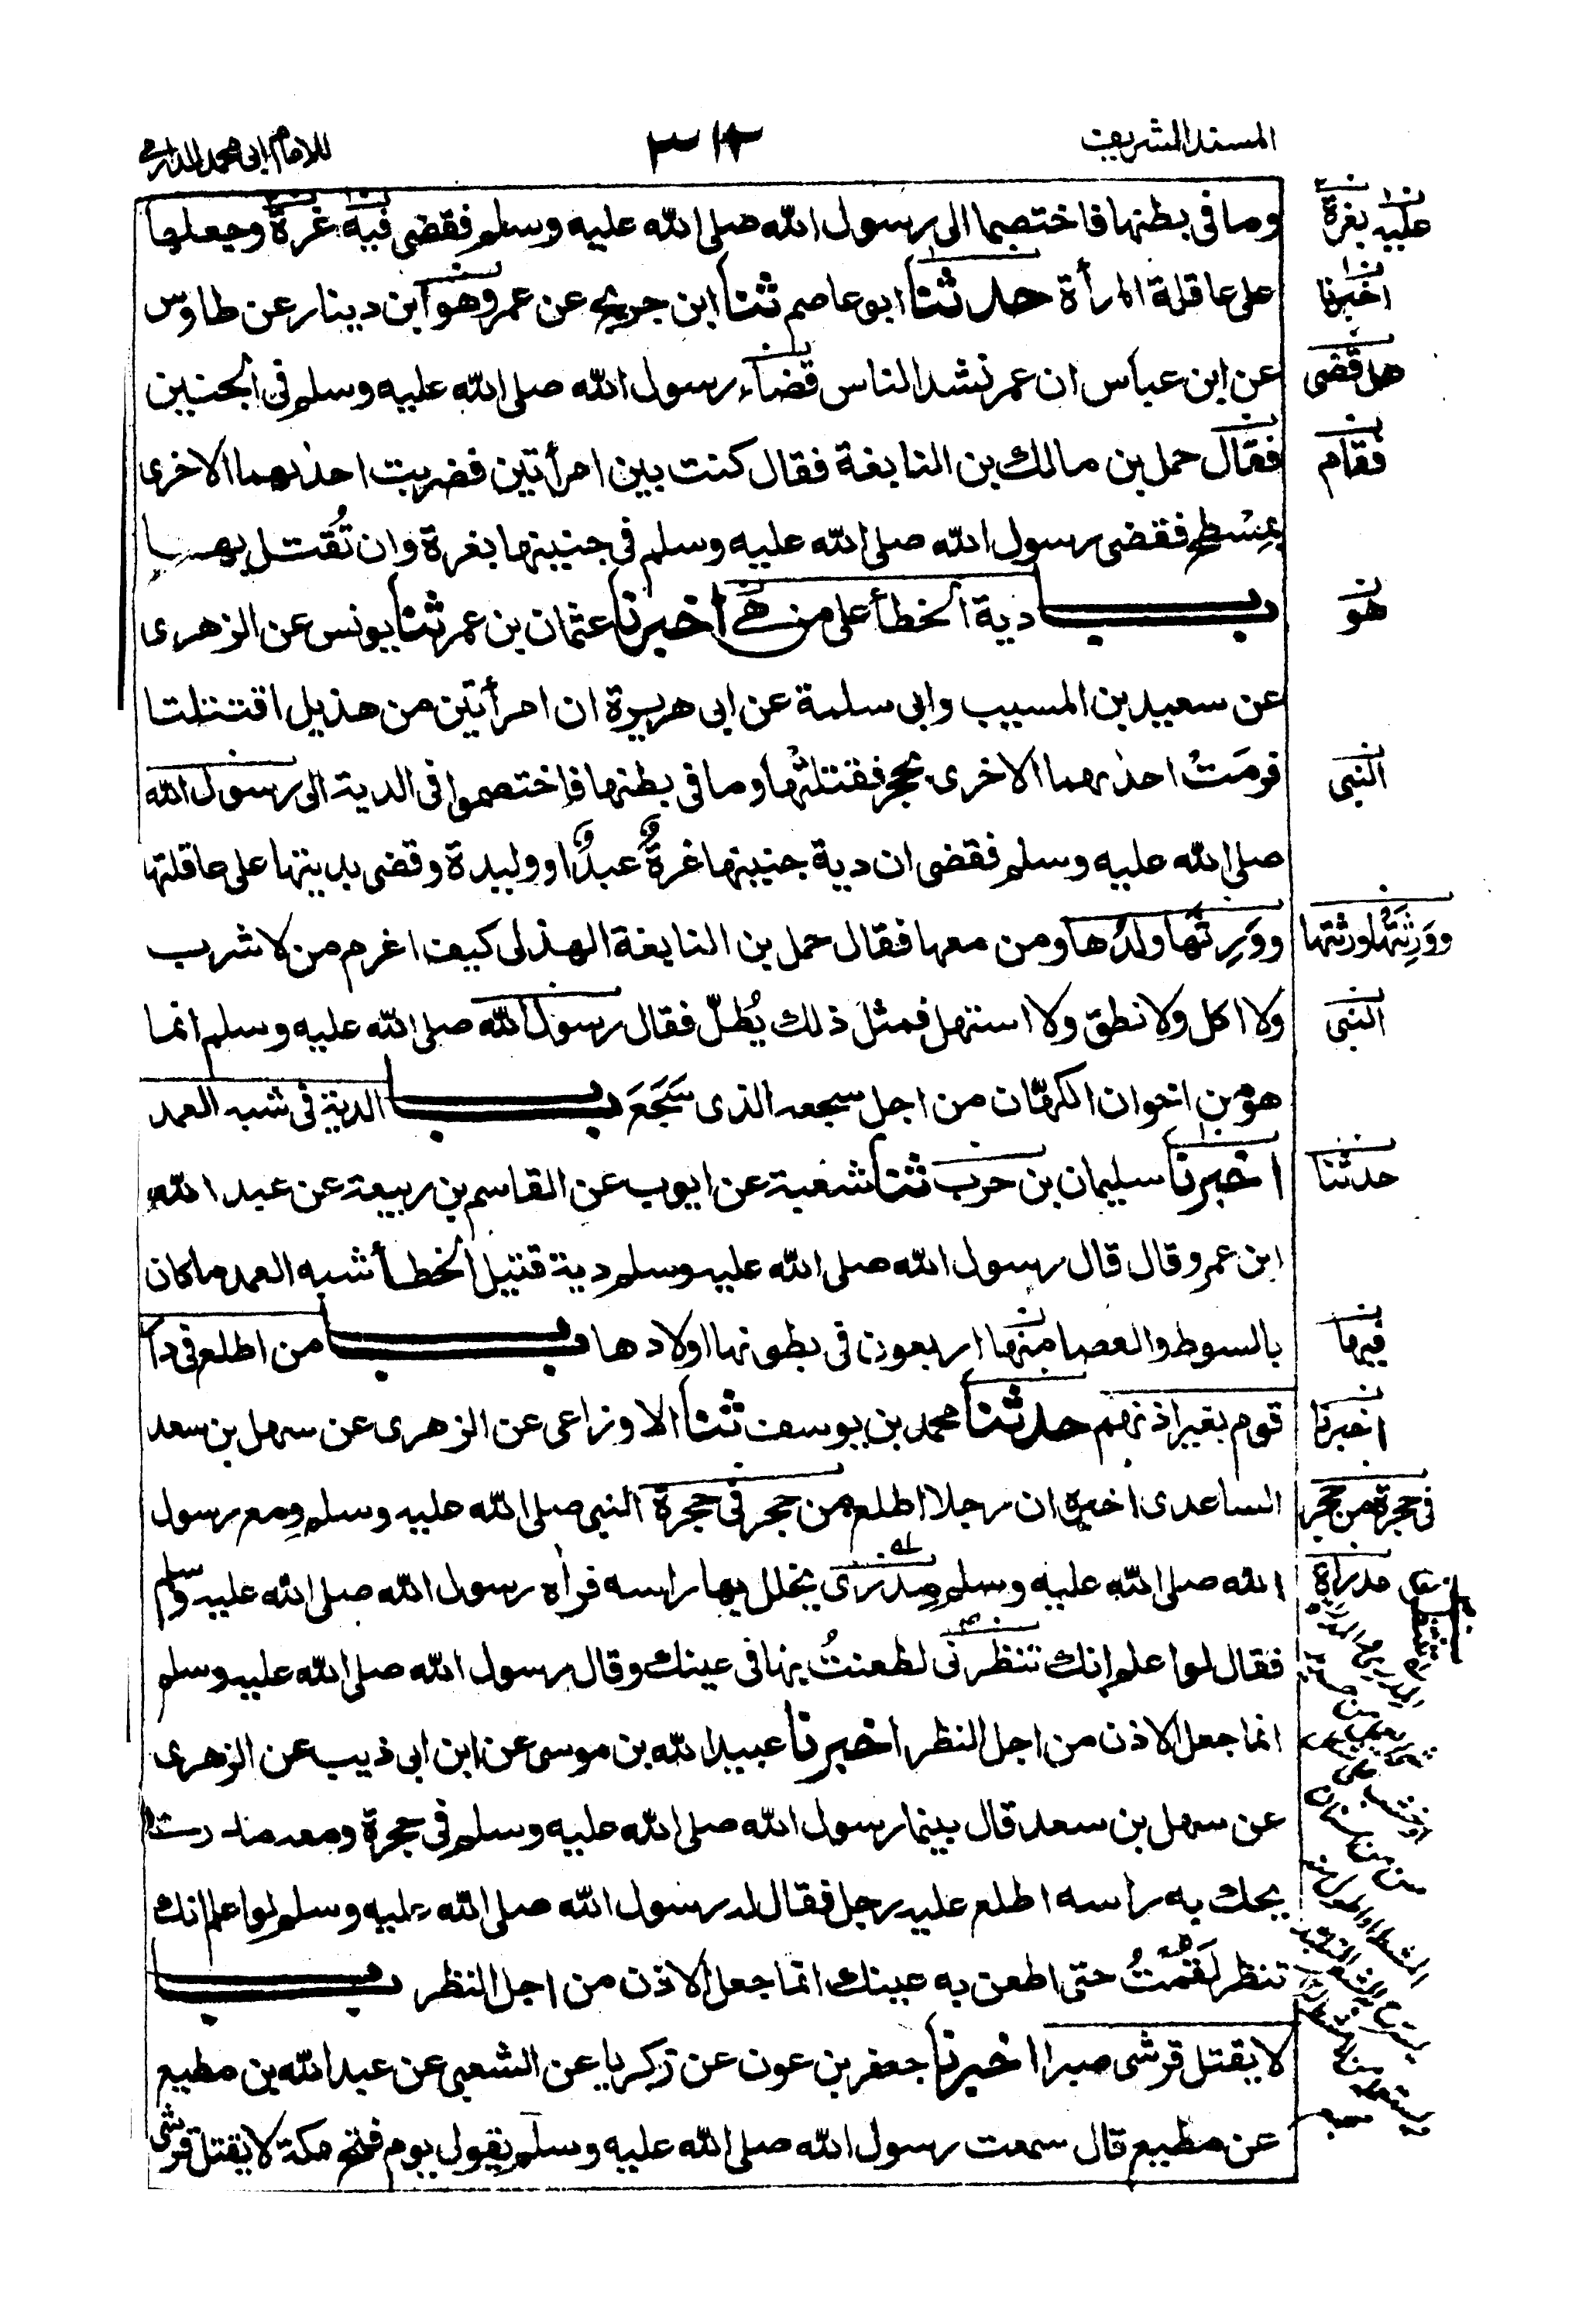 المسند الشريف
٣١٣
للامام ابى محمد الدارمى
وما فى بطنها فاختصما الى رسول الله صلى الله عليه وسلم فقضى فيه غرة وجعلها
على عاقلة المرأة حدثنا ابو عاصم ثنا ابن جريج عن عمرو هو ابن دينار عن طاوس
عن ابن عباس ان عمر نشد الناس قضاء رسول الله صلى الله عليه وسلم فى الجنين
فقال حمل بن مالك بن النابغة فقال كنت بين امرأتين فضربت احدٰىهما الاخرى
بمِسْطح فقضى رسول الله صلى الله عليه وسلم فى جنينها بغرة وان تُقتل بها
باب دية الخطأ على من هى اخبرنا عثمان بن عمر ثنا يونس عن الزهرى
عن سعيد بن المسيب وابى سلمة عن ابى هريرة ان امرأتين من هذيل اقتتلتا
فرمَتْ احدٰىهما الاخرى بحجر فقتلتْها وما فى بطنها فاختصموا فى الدية الى رسول الله
صلى الله عليه وسلم فقضى ان دية جنينها غرةٌ عبدٌ او وليدة وقضى بديتها على عاقلتها
ووَرِثَها ولدُها ومن معها فقال حمل بن النابغة الهذلى كيف اغرم من لا شرب
ولا اكل ولا نطق ولا استهل فمثل ذلك يُطلّ فقال رسول الله صلى الله عليه وسلم انما
هو من اخوان الكهّان من اجل سجعه الذى سَجَعَ باب الدية فى شبه العمد
اخبرنا سليمان بن حرب ثنا شعبة عن ايوب عن القاسم بن ربيعة عن عبد الله
ابن عمرو قال قال رسول الله صلى الله عليه وسلم دية قتيل الخطأ شبه العمد ما كان
بالسوط والعصا منها اربعون فى بطونها اولادها باب من اطلع فى دا
قوم بغير اذنهم حدثنا محمد بن يوسف ثنا الاوزاعى عن الزهرى عن سهل بن سعد
الساعدى اخبره ان رجلا اطلع من حجر فى حجرة النبى صلى الله عليه وسلم ومع رسول
الله صلى الله عليه وسلم مِدرى يخلل بها راسه فراٰه رسول الله صلى الله عليه وسلم
فقال لو اعلم انك تنظرنى لطعنتُ بها فى عينك وقال رسول الله صلى الله عليه وسلم
انما جعل الاذن من اجل النظر اخبرنا عبيد الله بن موسى عن ابن ابى ذيب عن الزهرى
عن سهل بن سعد قال بينما رسول الله صلى الله عليه وسلم فى حجرة ومعه
يحك به راسه اطلع عليه رجل فقال له رسول الله صلى الله عليه وسلم لو اعلم انك
تنظر لَقُمْتُ حتى اطعن به عينك انما جعل الاذن من اجل النظر باب
لا يقتل قرشى صبرا اخبرنا جعفر بن عون عن زكريا عن الشعبى عن عبد الله بن مطيع
عن مطيع قال سمعت رسول الله صلى الله عليه وسلم يقول يوم فتح مكة لا يقتل قرشى
عليه بغرة
اخبرنا
هل قضى
فقام
هو
النبى
ووَرِثَتْها ورثتها
النبى
حدثنا
فيها
اخبرنا
فى حجرة من حجر
مدراة